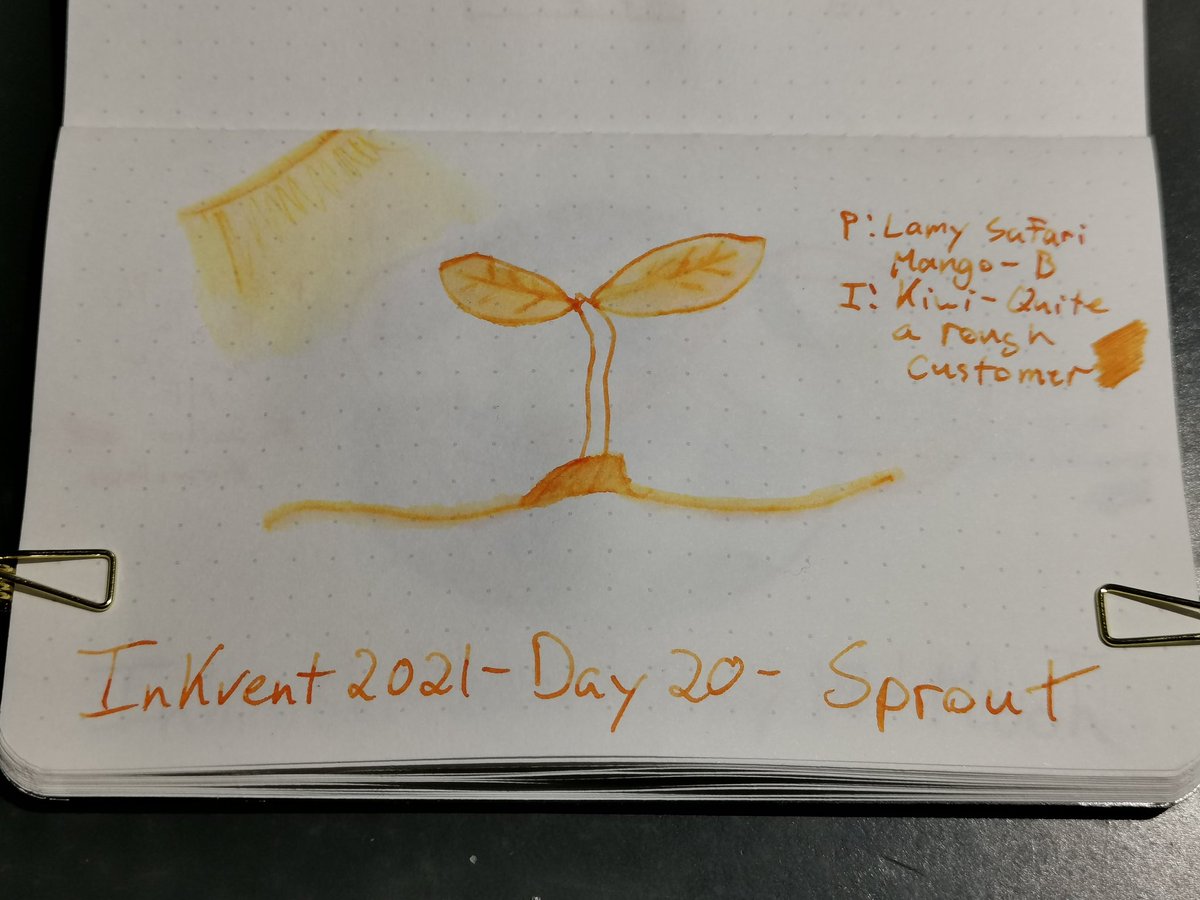 P: Lamy Safari
Mango-B
I: Kiwi-Quite
a rough
Customer
InKvent 2021-Day 20- Sprout